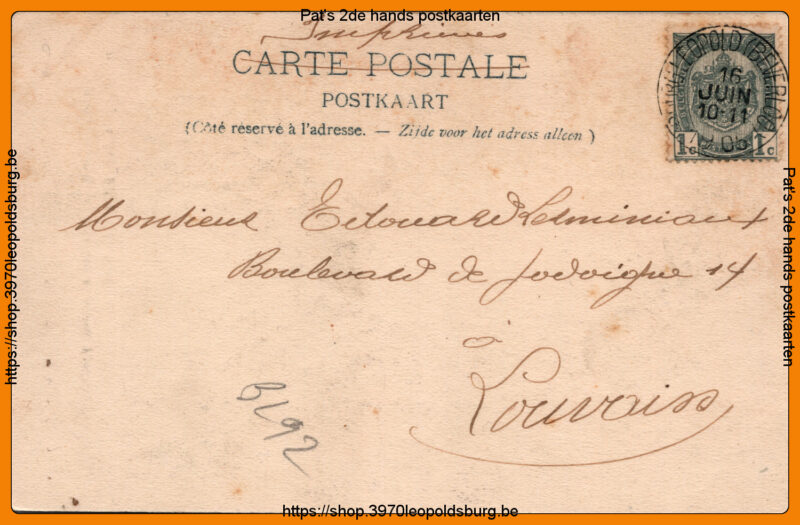 Pat's 2de hands postkaarten
Imprimés
CARTE POSTALE
POSTKAART
(Côté réservé à l'adresse. — Zijde voor het adress alleen)
BOURG-LEOPOLD (BEVERLOO)
16
JUIN
10-11
05
1c 1c
Monsieur Edouard
Boulevard de Jodoigne 14
à
Louvain
BL92
https://shop.3970leopoldsburg.be
Pat's 2de hands postkaarten
https://shop.3970leopoldsburg.be